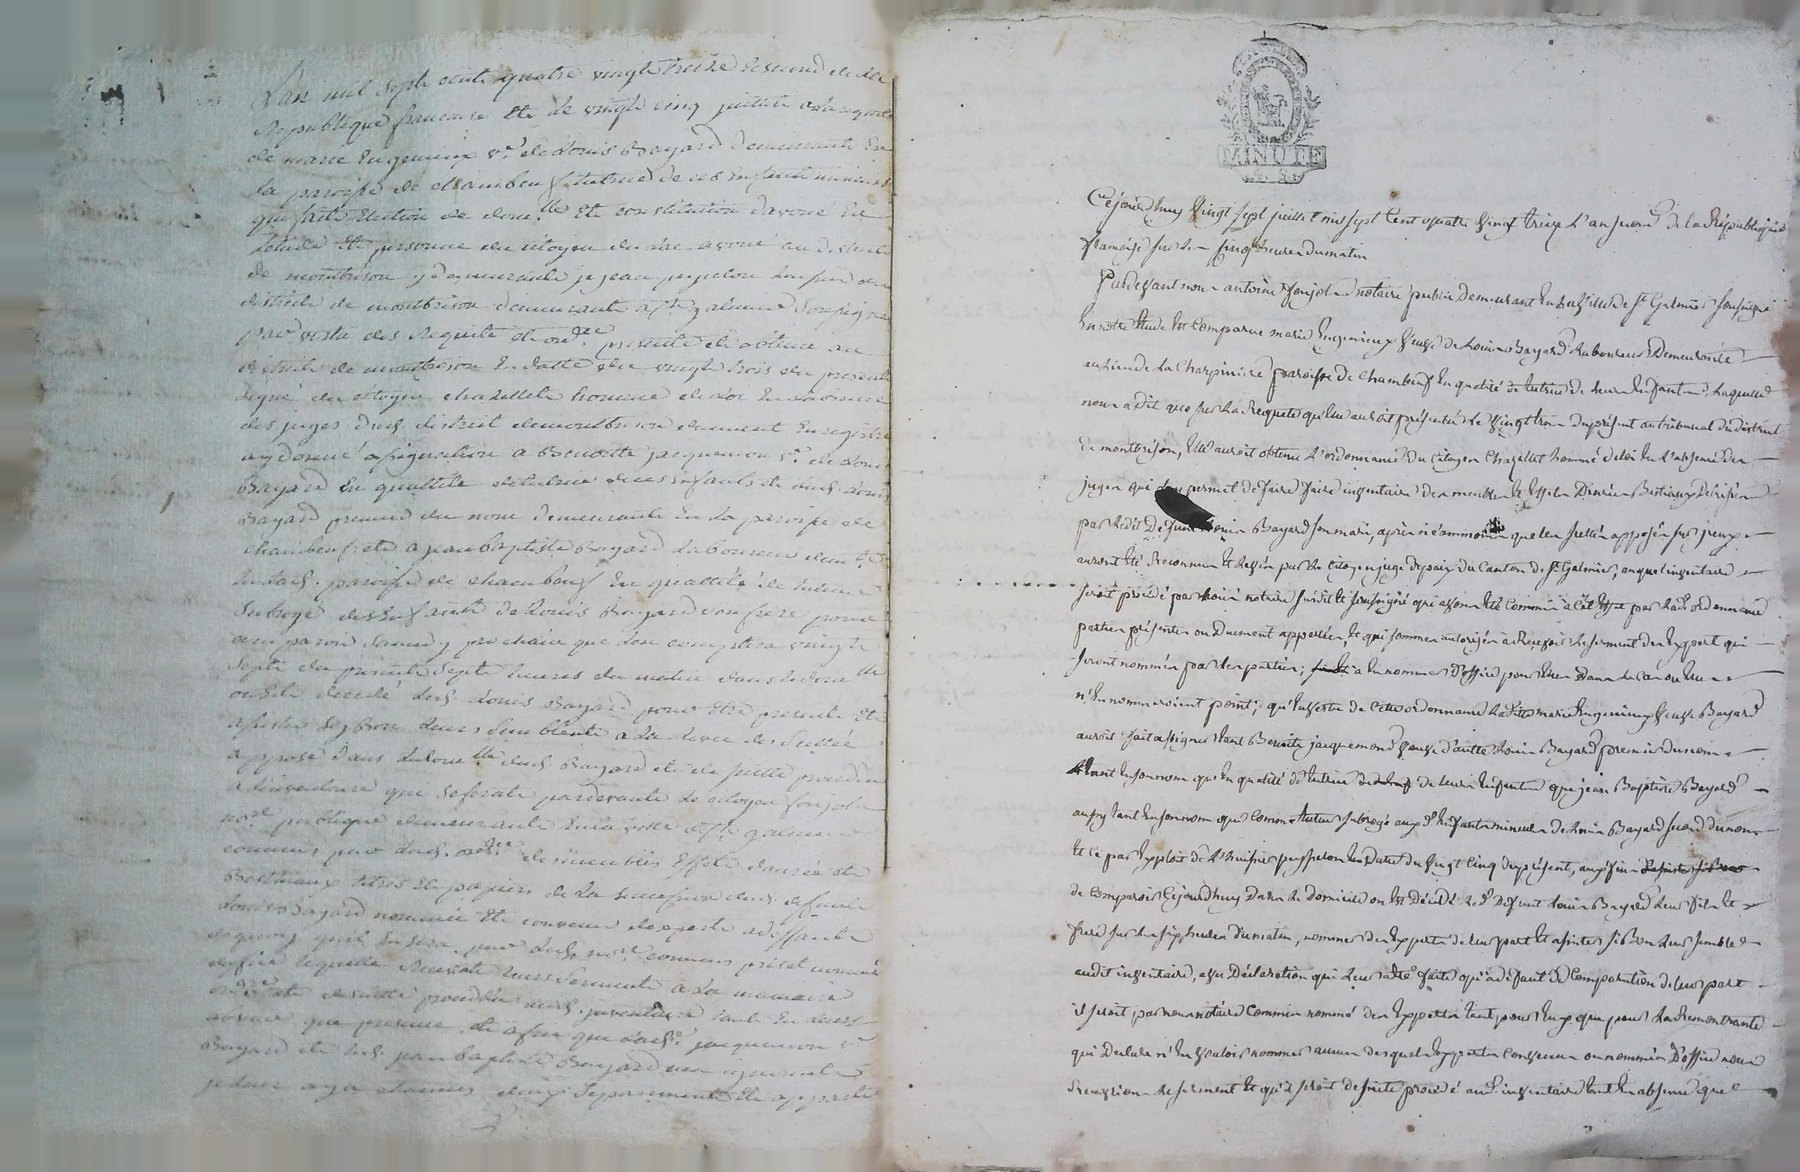 L'an mil sept cents quatre vingt treize second de la
Republique francaise et le vingt cinq juillet a la requete
de marie Engenieux ve. de Louis Bayard demeurante en
la paroisse de Chambeuf tutrice de ses enfants mineurs
qui fait election de domlle et constitution d'avoué en
letude et personne du citoyen avoué au district
de montbrison y demeurante je jean huissier du
district de montbrison demeurante a St galmier soussigné
par vertu des Requete et ordce presenté et obtenue au
district de montbrison en datte du vingt trois du present
signé du citoyen chazellet homme de loi en l'absence
des juges dud. district de montbrison duement Enregistré
ay donné assignation a Benoitte jacquemon ve. de Louis
Bayard en quallité de tutrice de ses enfants de dud. Louis
Bayard premier du nom demeurante en la paroisse de
chambeuf et a jean baptiste Bayard laboureur dem.t
en lad. paroisse de chambeuf en quallité de tuteur
subrogé des enfants de Louis Bayard son frere pour
comparoir samedy prochain que l'on comptera vingt
sept du present sept heures du matin dans le domlle
ou est decedé led. Louis Bayard pour etre presente et
assister sy bon leurs semblent a la levée des scellés
apposé dans le domlle dud. Bayard et de suitte procedé
a l'inventaire qui se ferat pardevant le citoyen fonjols
nore publique demeurante en la ville de St galmier
commis par lad. ordce des meubles Effets danrée et
Bestiaux titres et papiers de la succession dud. defunt
Louis Bayard nommée et convenir d'experts a deffaut
de quoy qu'il en sera par led. nore commis pris et nommé
d'office lequelle recevra leurs serments a la maniere
ordre et de suitte procedé aud. inventaire tant en leurs
absence que presence et afin que lad. jacquemon ve
Bayard et led. jean baptiste Bayard n'en ignorent
je leur ay a chacuns deux separement et apparté
MINUTE
Cejourd'huy Vingt sept juillet mil sept Cent quatre Vingt treize L'an second de la Republique
francaise sur les cinq heures du matin
Pardevant nous antoine fonjols notaire public demeurant en la Ville de St Galmier soussigné
En notre Etude Est Comparue marie Engenieux Veuve de Louis Bayard Laboureur Demeurante
au Lieu de La Charpiniere paroisse de Chambeuf En qualité de tutrice de leurs Enfants, Laquelle
nous a dit que sur La Requete qu'elle auroit présentée le Vingt trois du présent au tribunal du district
de montbrison, Elle auroit obtenu L'ordonnance du Citoyen Chazellet homme de loi En L'absence des
juges qui permet de faire faire inventaire des meubles Et Effets Denrées Bestiaux délaissés
par Ledit Defunt Louis Bayard son mari, après néammoins que les scellés apposés sur iceux
auront été Reconnus Et Levés par Le Citoyen juge de paix du Canton de St Galmier, auquel inventaire
seroit procédé par Nous notaire susdit Et soussigné qui avons été Commis à Cet Effet par Lad. ordonnance
parties présentes ou Duement appellées, Et qui sommes autorisés à Recevoir Le serment des Experts qui
seront nommés par Les parties; à En nommer d'office pour Elles Dans Le Cas ou Elles
n'En nommeroient point; qu'En Vertu de Cette ordonnance Laditte marie Engenieux Veuve Bayard
auroit fait assigner tant Benoite jacquemond Veuve d'autre Louis Bayard premier du nom
tant En son nom que En qualité de tutrice de leurs Enfants que jean Baptiste Bayard
aussy tant En son nom que Comme tuteur subrogé auxd. Enfants mineurs de Louis Bayard second du nom
Et Ce par Exploit de L'huissier En Date du Vingt Cinq du présent, aux fins
de Comparoir Cejourd'huy Dans Le Domicile ou Est Décédé Led. Defunt Louis Bayard Leur fils Et
frere sur Les six heures du matin, nommer des Experts de leur part Et assister si Bon leur semble
audit inventaire, avec Déclaration qui Leur a été faite qu'à défaut de Comparution de leur part
il seroit par nous notaire Commis nommé des Experts tant pour Eux que pour La Remontrante
qui Déclare n'En Vouloir nommer aucun desquels Experts Convenus ou nommés D'office nous
Recevrions Le serment Et qu'il seroit de suite procédé aud. inventaire tant En absence que